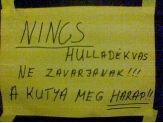 NINCS
HULLADÉKVAS
NE ZAVARJANAK!!!
A KUTYA MEG HARAP!!